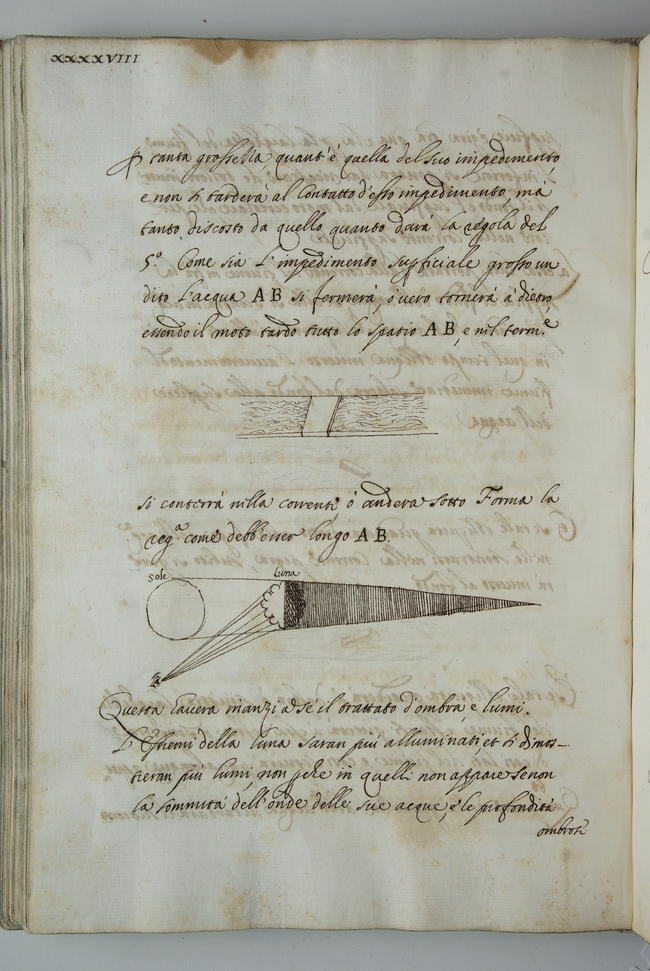 XXXXVIII
ꝑ tanta grossezza, quant'è quella del suo impedimento,
e non si tarderà al Contatto d'esso impedimento, mà
tanto discosto da quello quanto darà la regola del
5.º Come sia l'impedimento suꝑficiale grosso un
dito l'acqua AB si fermerà, ò vero tornerà à dietro,
essendo il moto tardo tutto lo spatio AB, e nel term.e
si conterrà nella corrente, ò anderà sotto Forma la
reg.ª come debb'esser longo AB.
Sole
luna
Questa haverà inanzi à sé il trattato d'ombra, e lumi.
L'Estremi della luna saran più alluminati, et si dimos-
treran più lumi, non ꝑche in quelli non appare se non
la sommità dell'onde delle sue acque, e le profondità
ombrose